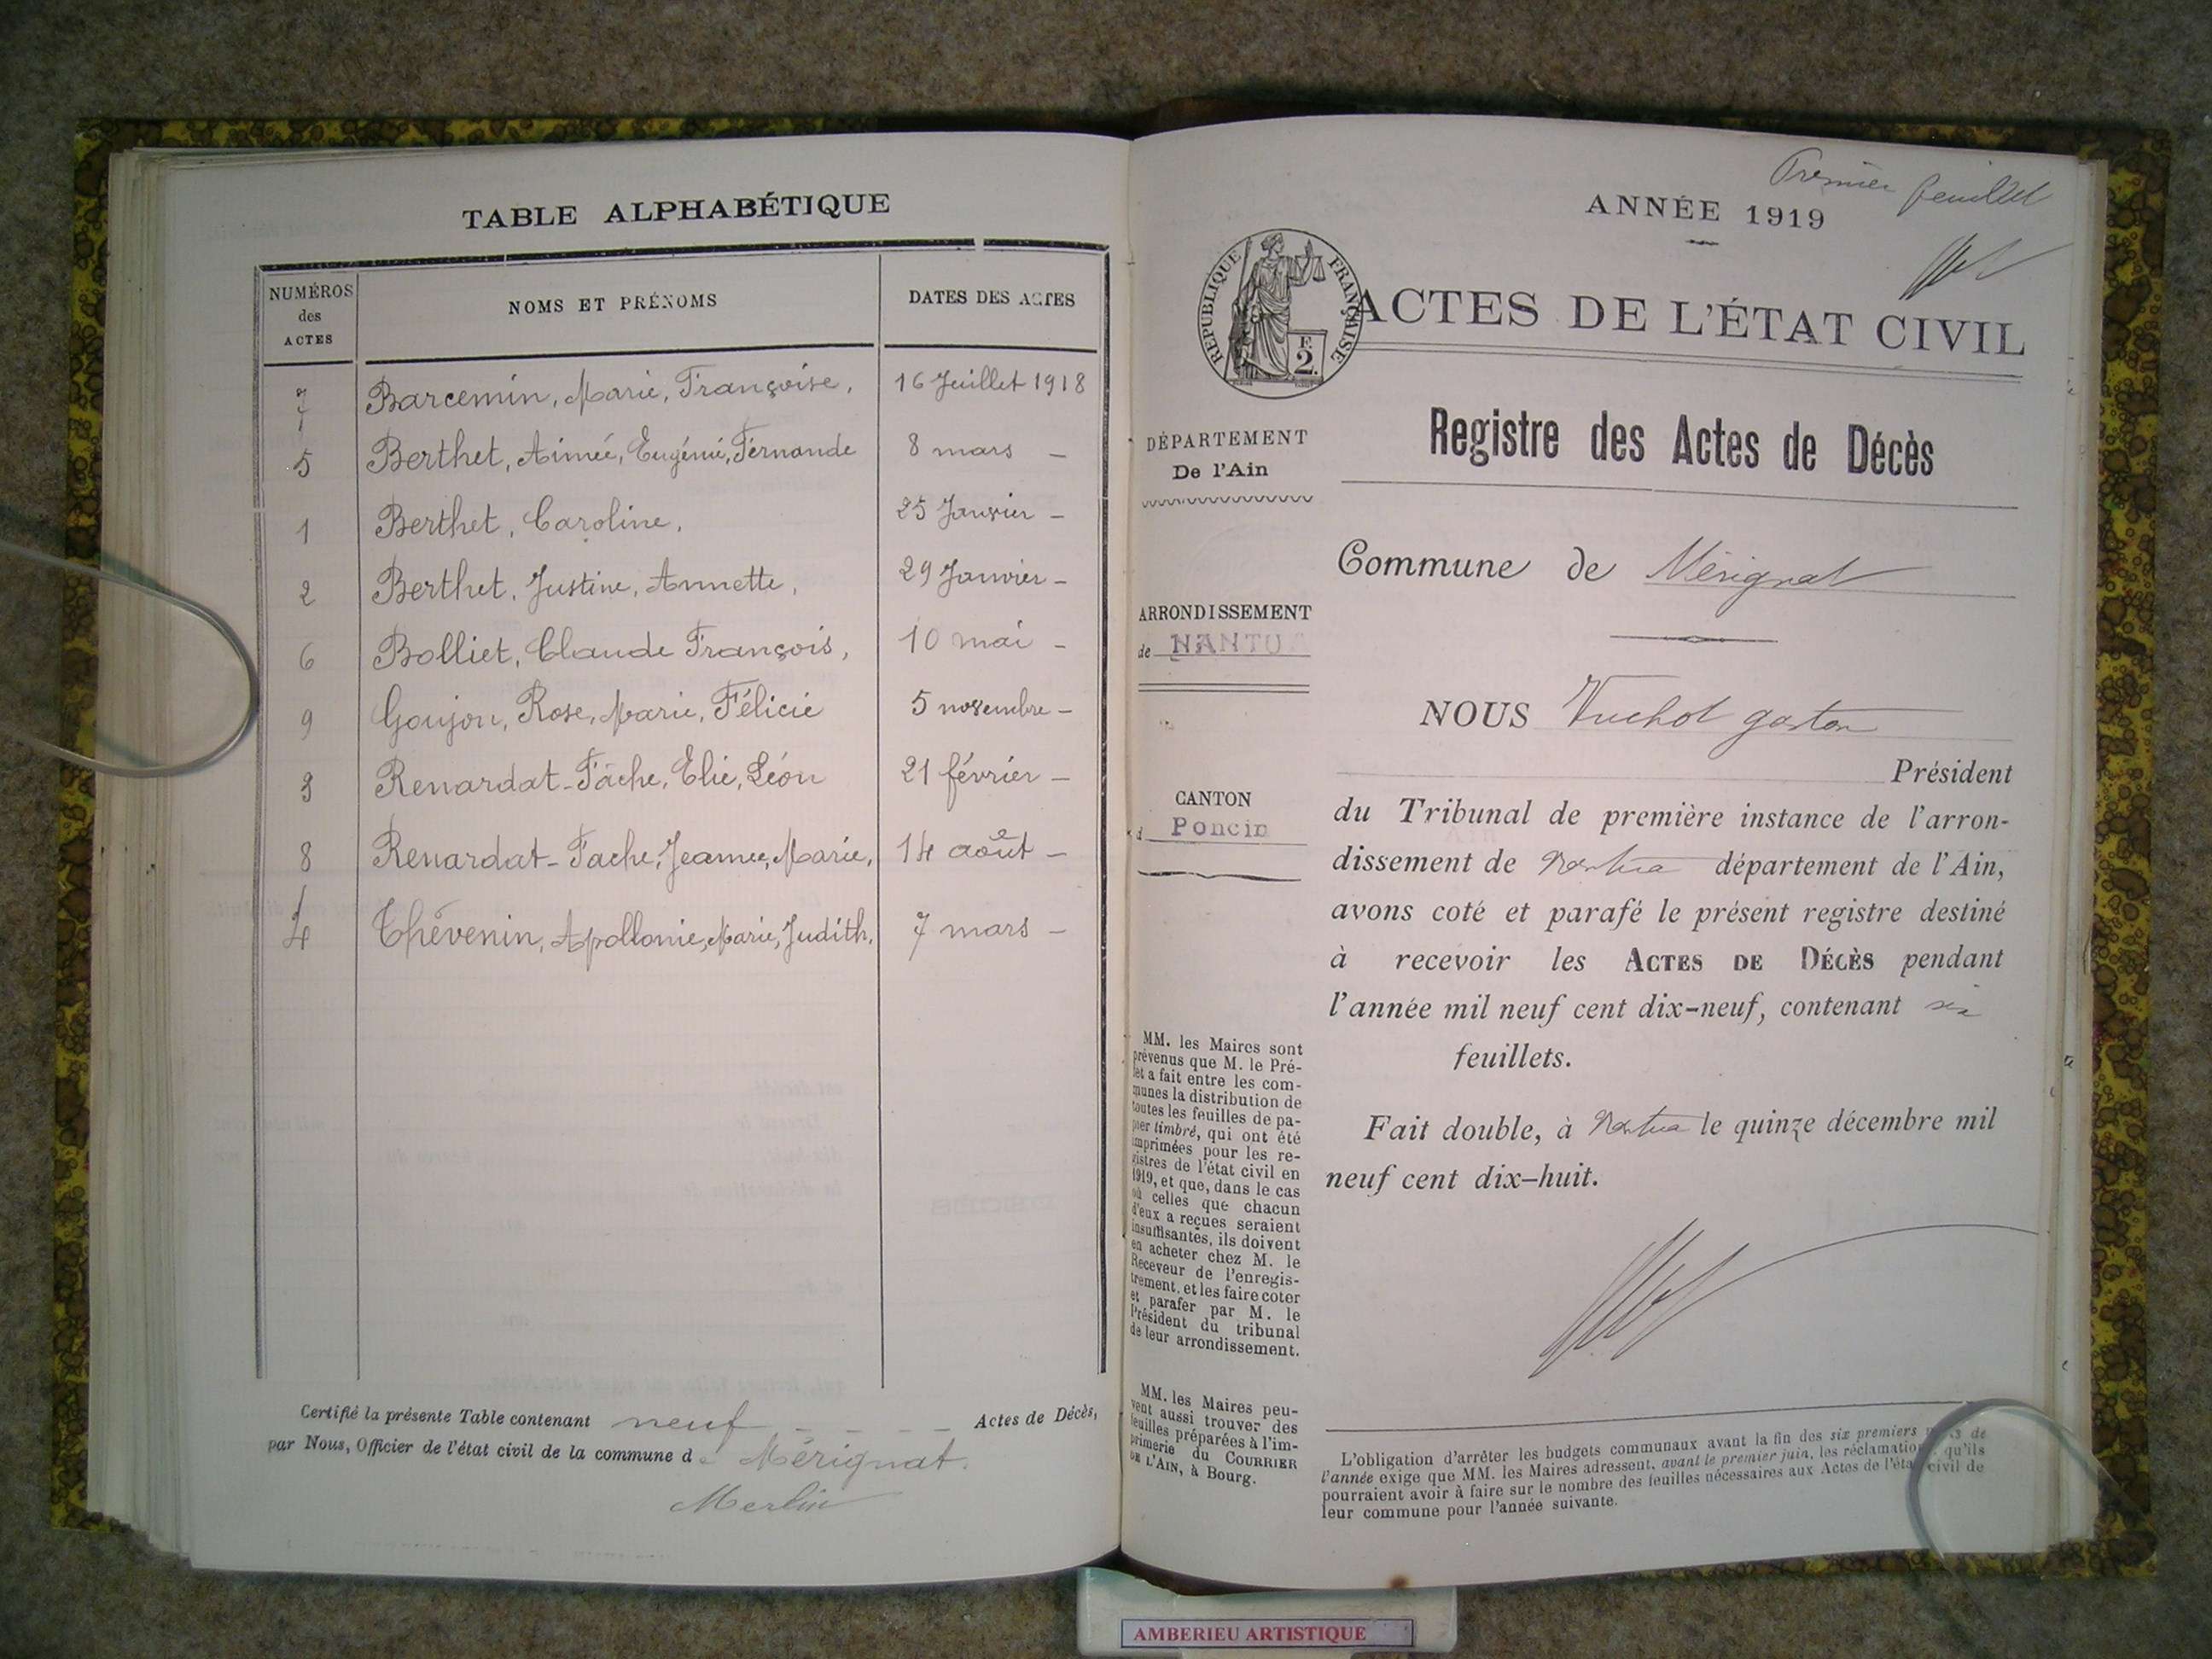 TABLE ALPHABÉTIQUE
NUMÉROS des ACTES | NOMS ET PRÉNOMS | DATES DES ACTES
7 Barcemin, Marie, Françoise, 16 Juillet 1918
5 Berthet, Aimée, Eugénie, Fernande 8 mars -
1 Berthet, Caroline, 25 Janvier -
2 Berthet, Justine, Annette, 29 Janvier -
6 Bolliet, Claude François, 10 mai -
9 Goujon, Rose, Marie, Félicie 5 novembre -
3 Renardat-Fâche, Elie, Léon 21 février -
8 Renardat-Fache, Jeanne, Marie, 14 août -
4 Thévenin, Apollonie, Marie, Judith, 7 mars -
Certifié la présente Table contenant neuf - - - - Actes de Décès,
par Nous, Officier de l'état civil de la commune de Mérignat.
Merlin
Premier feuillet
ANNÉE 1919
RÉPUBLIQUE FRANÇAISE
F. 2.
ACTES DE L'ÉTAT CIVIL
Registre des Actes de Décès
DÉPARTEMENT
De l'Ain
ARRONDISSEMENT
de NANTUA
CANTON
d Poncin
MM. les Maires sont
prévenus que M. le Pré-
fet a fait entre les com-
munes la distribution de
toutes les feuilles de pa-
pier timbré, qui ont été
imprimées pour les re-
gistres de l'état civil en
1919, et que, dans le cas
où celles que chacun
d'eux a reçues seraient
insuffisantes, ils doivent
en acheter chez M. le
Receveur de l'enregis-
trement, et les faire coter
et parafer par M. le
Président du tribunal
de leur arrondissement.
MM. les Maires peu-
vent aussi trouver des
feuilles préparées à l'im-
primerie du COURRIER
DE L'AIN, à Bourg.
Commune de Mérignat
NOUS Vuchot gaston
Président
du Tribunal de première instance de l'arron-
dissement de Nantua département de l'Ain,
avons coté et parafé le présent registre destiné
à recevoir les ACTES DE DÉCÈS pendant
l'année mil neuf cent dix-neuf, contenant six
feuillets.
Fait double, à Nantua le quinze décembre mil
neuf cent dix-huit.
L'obligation d'arrêter les budgets communaux avant la fin des six premiers mois de
l'année exige que MM. les Maires adressent, avant le premier juin, les réclamations qu'ils
pourraient avoir à faire sur le nombre des feuilles nécessaires aux Actes de l'état civil de
leur commune pour l'année suivante.
AMBERIEU ARTISTIQUE